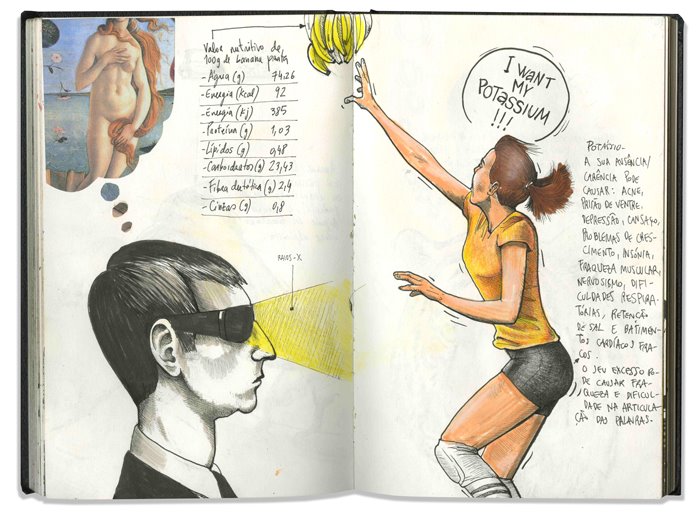 Valor nutritivo de
100g de banana prata
- Água (g) 74,26
- Energia (kcal) 92
- Energia (kj) 385
- Proteína (g) 1,03
- Lípidos (g) 0,48
- Carboidratos (g) 23,43
- Fibra dietética (g) 2,4
- Cinzas (g) 0,8
RAIOS-X
I WANT
MY
POTASSIUM
!!!
POTÁSSIO -
A SUA AUSÊNCIA/
CARÊNCIA PODE
CAUSAR: ACNE,
PRISÃO DE VENTRE,
DEPRESSÃO, CANSAÇO,
PROBLEMAS DE CRES-
CIMENTO, INSÓNIA,
FRAQUEZA MUSCULAR,
NERVOSISMO, DIFI-
CULDADES RESPIRA-
TÓRIAS, RETENÇÃO
DE SAL E BATIMEN-
TOS CARDÍACOS FRA-
COS.
O SEU EXCESSO PO-
DE CAUSAR FRA-
QUEZA E DIFICUL-
DADE NA ARTICULA-
ÇÃO DAS PALAVRAS.